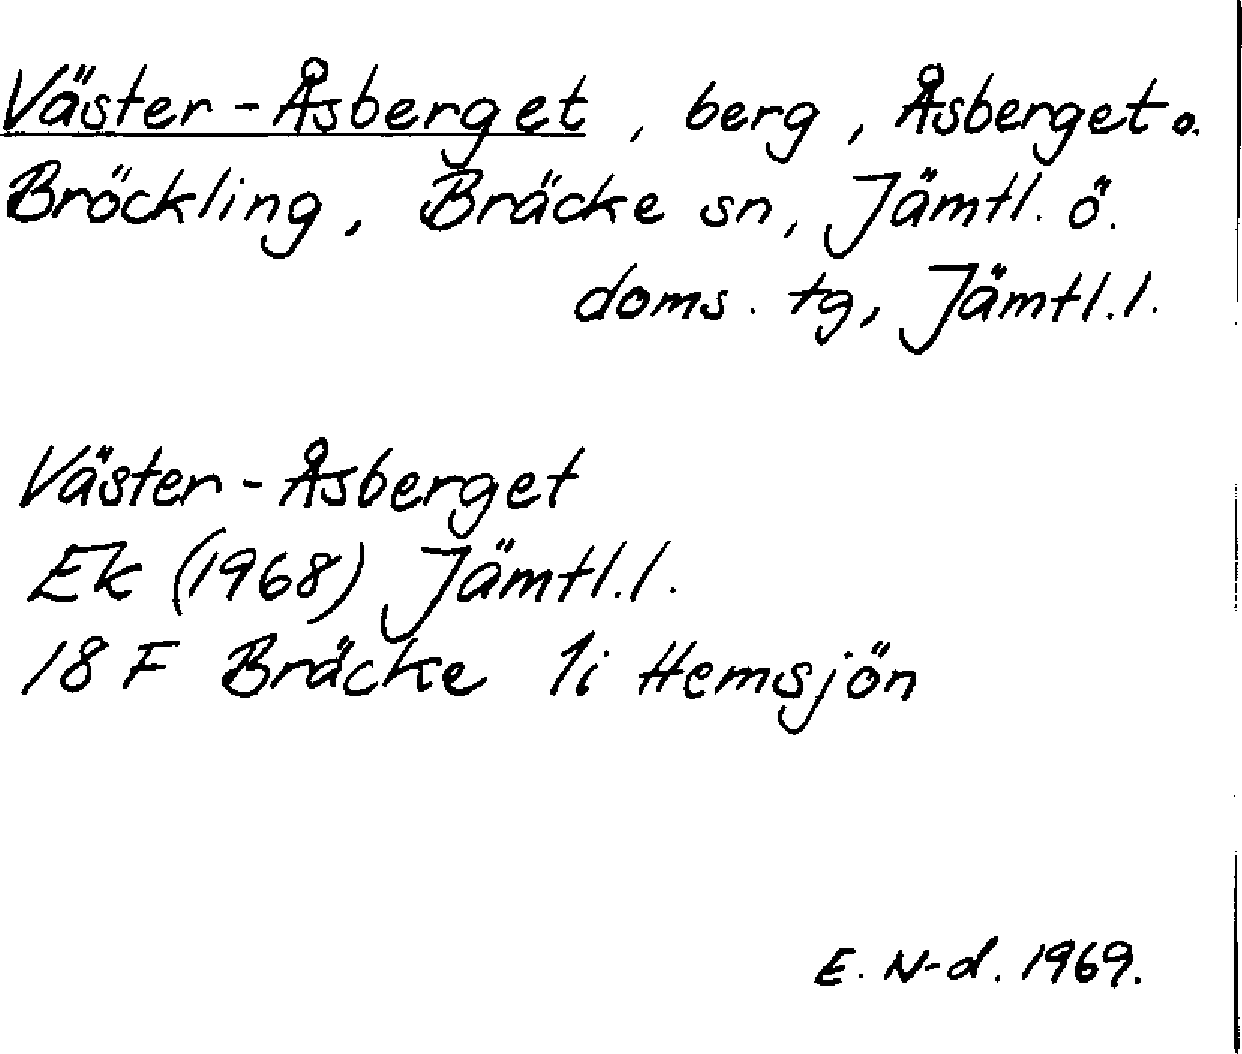 Väster-Åsberget, berg, Åsberget o.
Bröckling, Bräcke sn, Jämtl. ö.
doms. tg, Jämtl. l.
Väster-Åsberget
Ek (1968) Jämtl. l.
18 F Bräcke 1i Hemsjön
E. N-d. 1969.